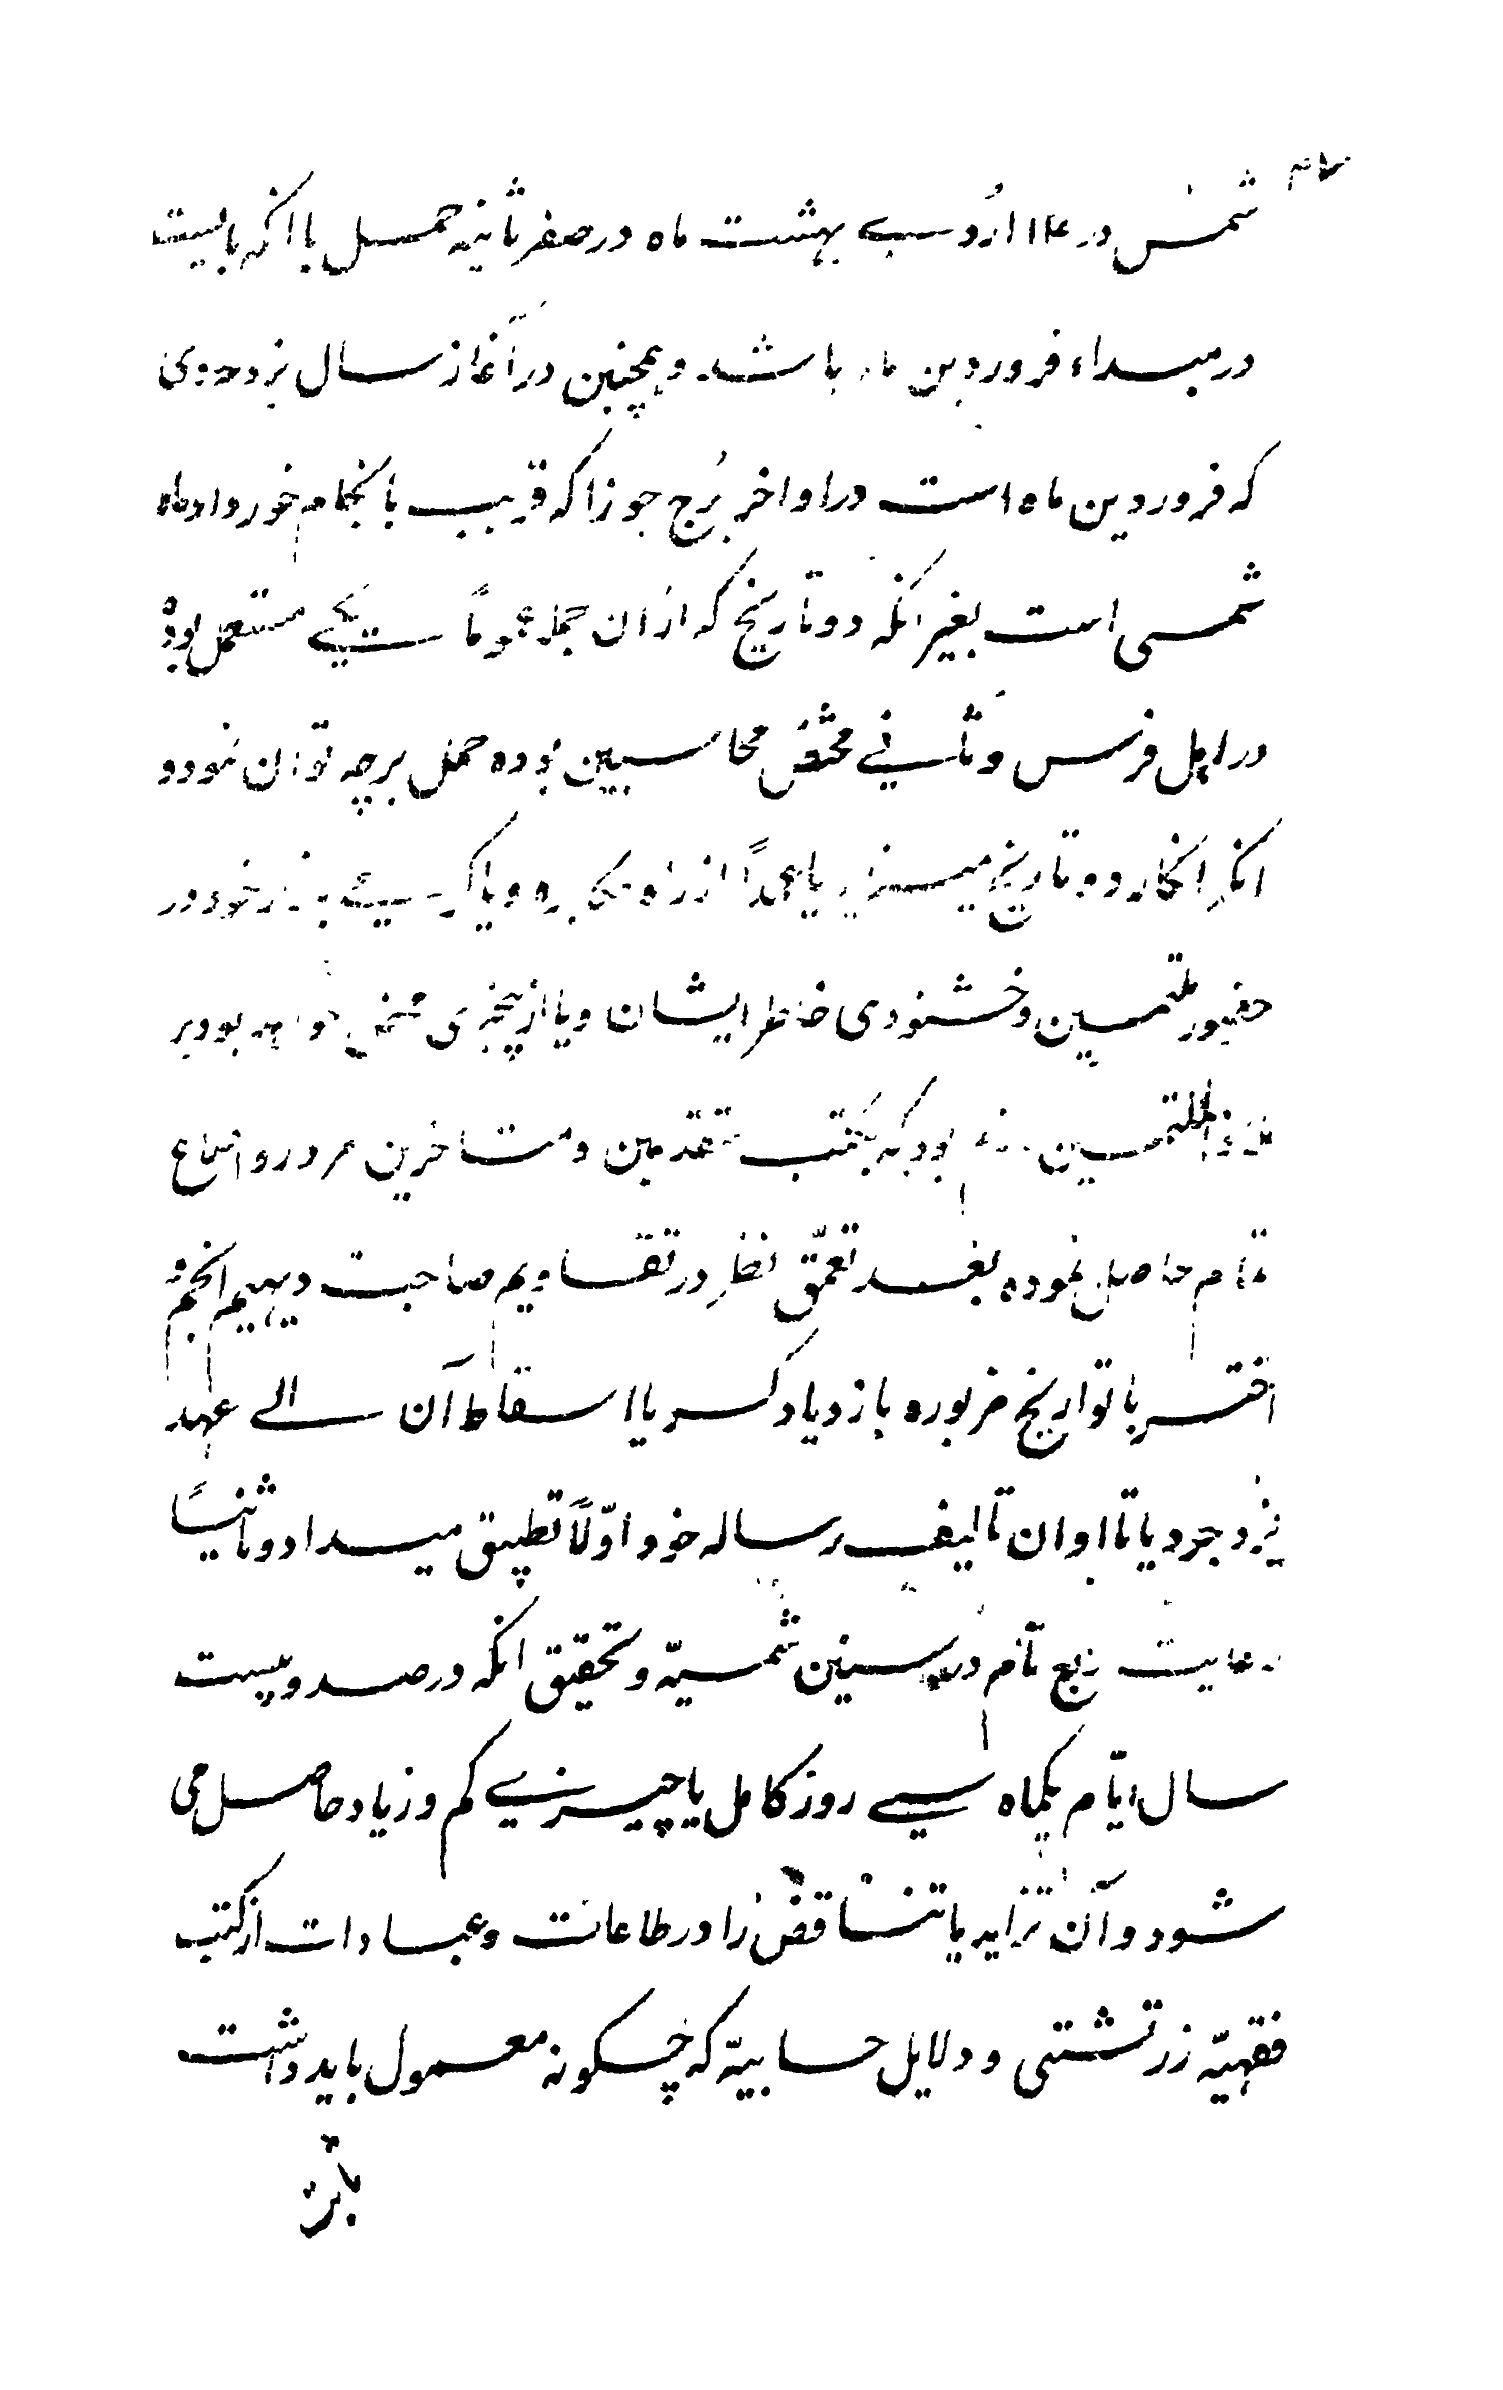 شمس در ۱۴ اردی بهشت ماه در صفر ثانیه حمل با انکه بایست
در مبداء فروردین ماه باشد و همچنین در آغاز سال یزدجردی
که فروردین ماه است در اواخر برج جوزا که قریب بانجام خورداد ماه
شمسی است بغیر انکه دو تاریخ که از ان جمله عموماً یکی مستعمل بوده
در اهل فرس و ثانی مختص محاسبین بوده حمل بر چه توان نمود و
انکر انکار دو تاریخ یا عمداً از راه و یا خود در
حضور ملتمسین و خشنودی خاطر ایشان و یا از بیخبری بود بر
الملتمسین بود که بکتب متقدمین و متاخرین مرور و اطلاع
تمام حاصل نموده بعد تعمّق نظر در تقاویم صاحبت دیهیم انجم و
اختر با تواریخ مزبوره بازدیاد کسر یا اسقاط آن الی عهد
یزدجرد یا تا اوان تالیف رساله خود اوّلاً تطبیق میداد و ثانیاً
رعایت ربع تام در سنین شمسیّه و تحقیق انکه در صد و بیست
سال ایّام یکماه سی روز کامل یا چیزی کم و زیاد حاصل می
شود و آن تزاید یا تناقض را در طاعات و عبادات از کتب
فقهیّه زرتشتی و دلایل حسابیّه که چکونه معمول باید داشت